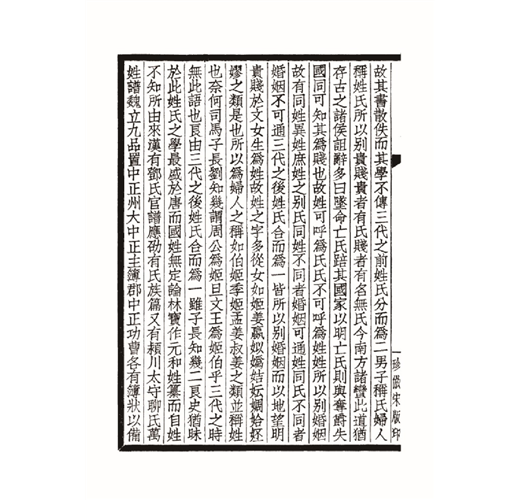 故其書散佚而其學不傳三代之前姓氏分而爲二男子稱氏婦人
稱姓氏所以別貴賤貴者有氏賤者有名無氏今南方諸蠻此道猶
存古之諸侯詛辭多曰墜命亡氏踣其國家以明亡氏則與奪爵失
國同可知其爲賤也故姓可呼爲氏氏不可呼爲姓姓所以別婚姻
故有同姓異姓庶姓之別氏同姓不同者婚姻可通姓同氏不同者
婚姻不可通三代之後姓氏合而爲一皆所以別婚姻而以地望明
貴賤於文女生爲姓故姓之字多從女如姬姜嬴姒嬀姞妘婤姶
嫪之類是也所以爲婦人之稱如伯姬季姬孟姜叔姜之類並稱姓
也奈何司馬子長劉知幾謂周公爲姬旦文王爲姬伯乎三代之時
無此語也良由三代之後姓氏合而爲一雖子長知幾二良史猶昧
於此姓氏之學最盛於唐而國姓無定論林寶作元和姓纂而自姓
不知所由來漢有鄧氏官譜應劭有氏族篇又有潁川太守聊氏萬
姓譜魏立九品置中正州大中正主簿郡中正功曹各有簿狀以備
一珍倣宋版印